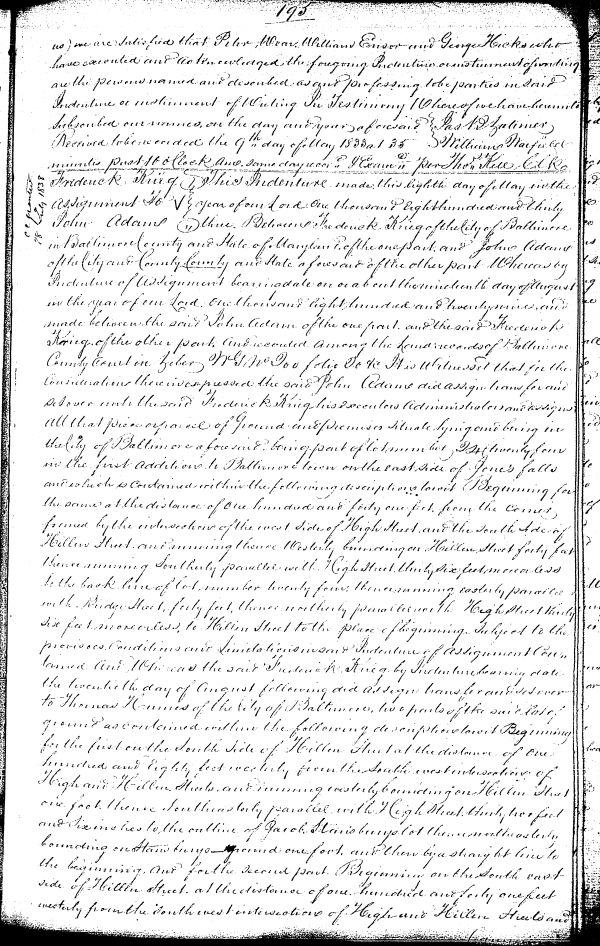 195
us) we are satisfied that Peter Wear, William Ensor and George Hicks who
have executed and acknowledged the foregoing Indenture or instrument of writing
are the persons named and described as and professing to be parties in said
Indenture or instrument of Writing In Testimony Whereof we have hereunto
Subscribed our names, on the day and year aforesaid Jas B Latimer
Received to be recorded the 9th day of May 1833 at 25 Wilhelmus
minutes past 10 oClock AM. same day recd & Examd per Thos Kell Clk
Frederick Krieg This Indenture made this eighth day of May in the
Assignment To year of our Lord One thousand Eight hundred and thirty
John Adams three Between Frederick Krieg of the City of Baltimore
in Baltimore County and State of Maryland of the one part and John Adams
of the City and County County and State aforesaid of the other part Whereas by
Indenture of Assignment bearing date on or about the nineteenth day of August
in the year of our Lord One thousand Eight hundred and twenty nine, and
made between the said John Adam of the one part and the said Frederick
Krieg of the other part. And recorded among the Land records of Baltimore
County Court in Liber W.G. No folio &c It is Witnessed that for the
Considerations therein expressed the said John Adams did assign transfer and
set over unto the said Frederick Krieg his executors Administrators and assigns
all that piece or parcel of Ground and premises situate lying and being in
the City of Baltimore aforesaid being part of lot number 24 (twenty four
in the first addition to Baltimore town on the east side of Jones falls
and which is contained within the following description, to wit Beginning for
the same at the distance of One hundred and forty one feet, from the corner
formed by the intersection of the west side of High Street, and the South Side of
Hillen Street, and running thence Westerly bounding on Hillen Street forty feet
thence running Southerly parallel with High Street, thirty six feet, more or less
to the back line of lot number twenty four, thence running easterly parallel
with Bridge Street, forty feet, thence northerly parallel with High Street thirty
six feet more or less, to Hillen Street to the place of beginning. Subject to the
provisoes Conditions and Limitations in said Indenture of Assignment Con
tained And Whereas the said Frederick Krieg by Indenture bearing date
the twentieth day of August following did assign transfer and set over
to Thomas of the City of Baltimore, two parts of the said lot of
ground as contained within the following description to wit Beginning
for the first on the South Side of Hillen Street at the distance of One
hundred and Eighty feet westerly from the South west intersection of
High and Hillen Streets, and running easterly bounding on Hillen Street
one foot thence Southeasterly parallel with High Street thirty two feet
and Six inches to the outline of Jacob Stansburys lot thence southwesterly
bounding on Stansburys ground one foot, and then by a straight line to
the beginning. And for the second part. Beginning on the South east
side of Hillen Street, at the distance of one hundred and forty one feet
westerly from the South west intersection of High and Hillen Streets and